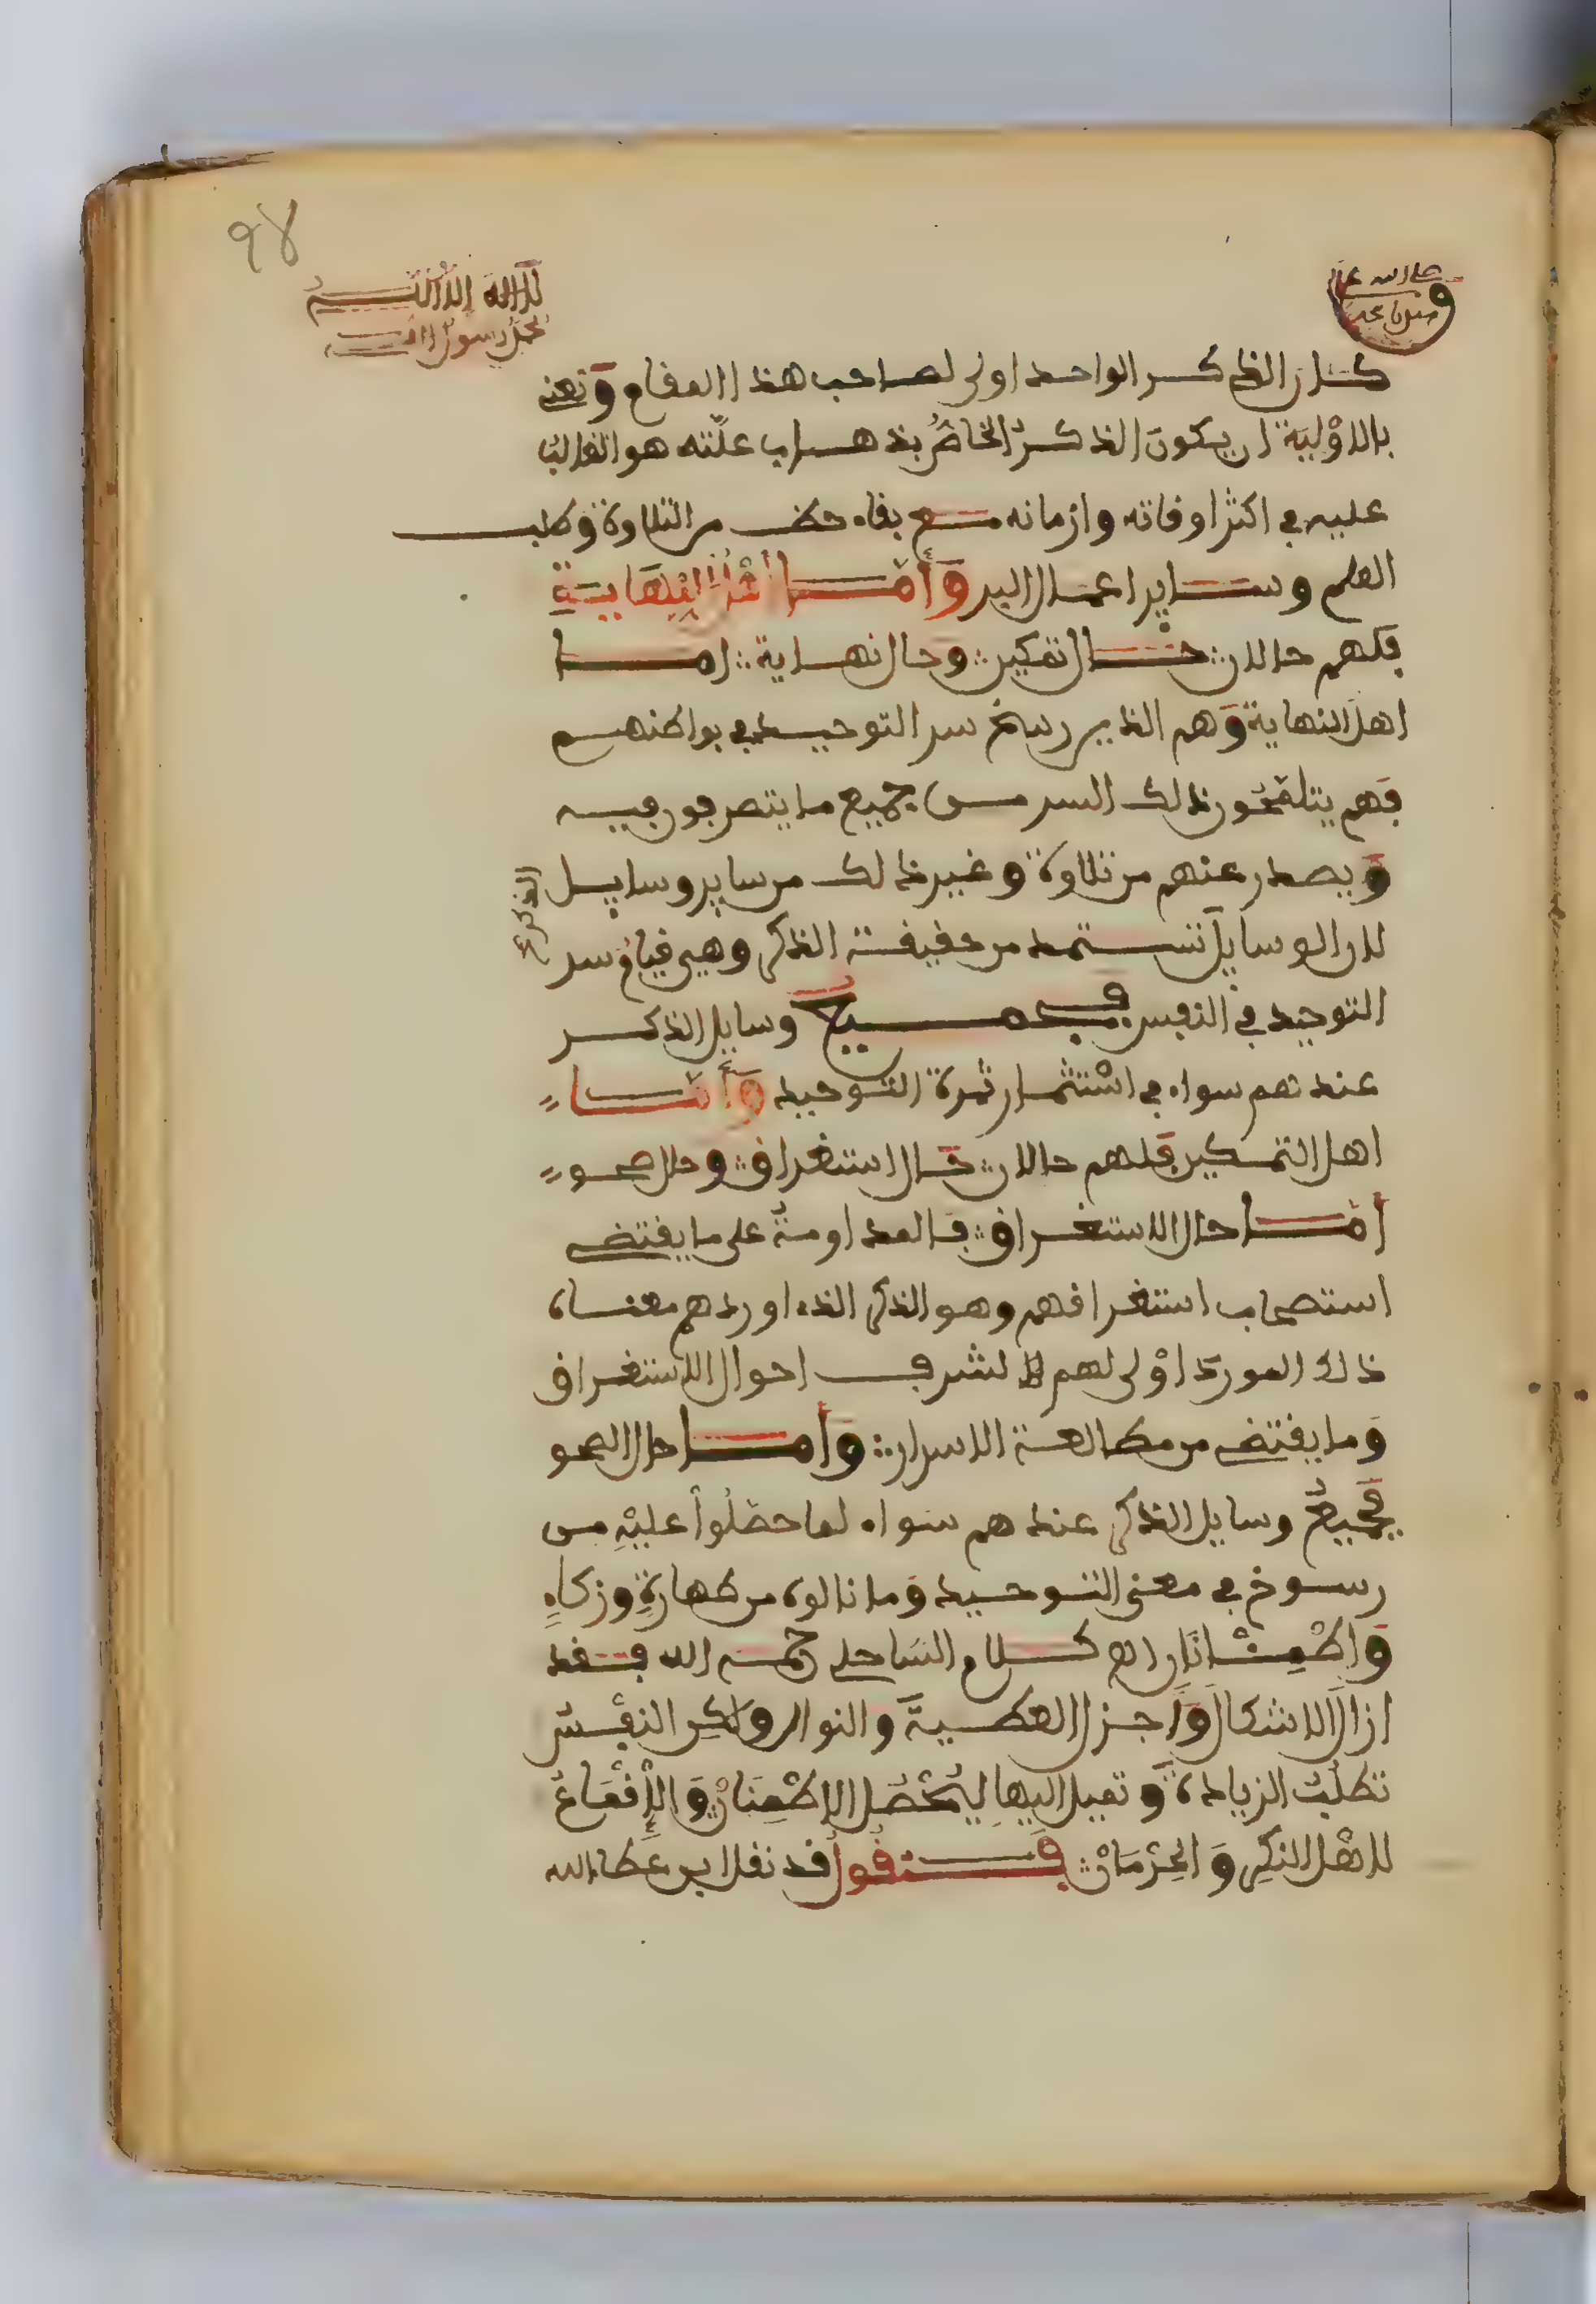 ٩٨
لا اله الا الله
محمد رسول الله
صلى الله على
سيدنا محمد
كان الذكر الواحد اولى لصاحب هذا المقام وَنعني
بالاوْلِيَة ان يكونَ الذكرُ الخاصُّ بذهاب علّته هو الغالبُ
عليه في اكثر اوقاته وازمانه مع بقاء حظ من التلاوة وطلب
العلم وساير اعمال البر وَأَمَّا أهْلُ النِّهَايَةِ
فلهم حالان حَال تمكين وحال نهاية امــا
اهل النهاية وَهم الذين رسخ سر التوحيد في بواطنهم
فهم يتلمحون ذلك السر من جميع ما يتصرفون فيه
وَيصدر عنهم من تلاوة وغير ذلك من ساير وسايل الذكر
لان الوسايل تستمد من حقيقة الذكر وهي قيامُ سر
التوحيد في النفس فجميعُ وسايل الذكر
عندهم سواء في اسْتثمار ثمرة التوحيد وَأَمَّا
اهل التمكين فلهم حالان حَال استغراق وحال صحو
أمَّا حال الاستغراق فالمداومةُ على ما يقتضي
استصحاب استغراقهم وهو الذكر الذي اوردهم معناه
ذلك المورد اوْلى لهم لشرف احوال الاستغراق
وَما يقتضي من مطالعة الاسرار وَأمَّا حال الصحو
فجميعُ وسايل الذكر عندهم سواء لما حصَلُوا عليْهِ من
رسوخ في معنى التوحيد وَما نالوه من طهارةٍ وزكاءٍ
وَاطْمِئْنَانٍ اﻫ كلام السَاحلي رحمه الله فقد
ازال الاشكالَ وَأجزل العطيةَ والنوال ولكِن النفْسُ
تطلُبُ الزيادةَ وَتميل اليها لِيَحْصُل الاطْمِنَانُ وَالْإقْمَاعُ
لاهْل النكِر وَالحِرْمَانْ فنقُولُ قد نقل ابن عَطاء الله